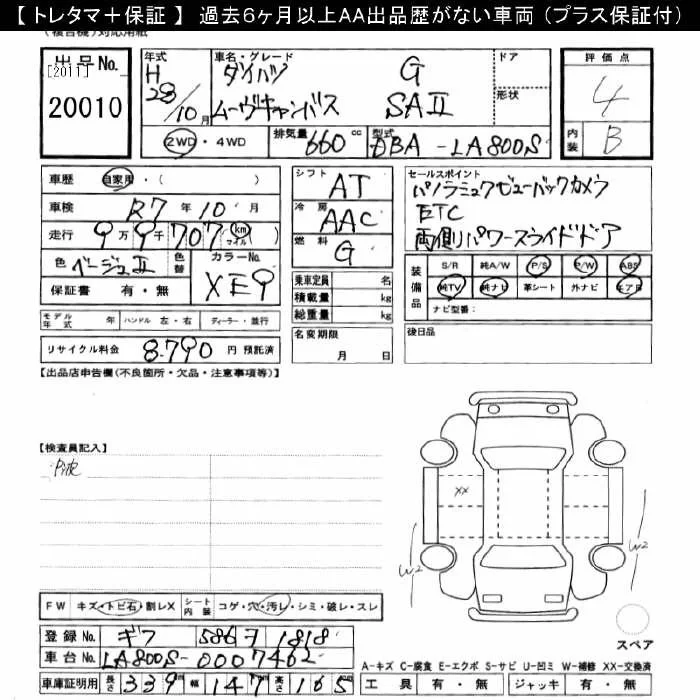 【トレタマ＋保証】 過去6ヶ月以上AA出品歴がない車両（プラス保証付）
出品No.
[2011]
20010
年式 H 28/10月
車名・グレード ダイハツ G
ムーヴキャンバス SAII
ドア
形状
2WD・4WD 排気量 660 cc 型式 DBA-LA800S
評価点
4
内装 B
車歴 自家用・( )
車検 R7年10月
走行 9万9千707 km マイル
色 ベージュII 色替 カラーNo. XE9
保証書 有・無
シフト AT
冷房 AAC
燃料 G
乗車定員 名
積載量 kg
総重量 kg
セールスポイント
パノラミックビューバックカメラ
ETC
両側パワースライドドア
装備品 S/R 純A/W P/S P/W ABS
純TV 純ナビ 革シート 外ナビ エアB
ナビ型番:
モデル年式 年 ハンドル 左・右 ディーラー・並行
リサイクル料金 8,790円 預託済
名変期限
月 日
後日品
【出品店申告欄(不良箇所・欠品・注意事項等)】
【検査員記入】
XX
W2
W2
FW キズ・トビ石・割レX シート内装 コゲ・穴・汚レ・シミ・破レ・スレ
スペア
登録No. ギフ 586 ヲ 1818
車台No. LA800S-0007462
A-キズ C-腐食 E-エクボ S-サビ U-凹ミ W-補修 XX-交換済
車庫証明用 長さ 339 幅 147 高さ 165
工具 有・無 ジャッキ 有・無